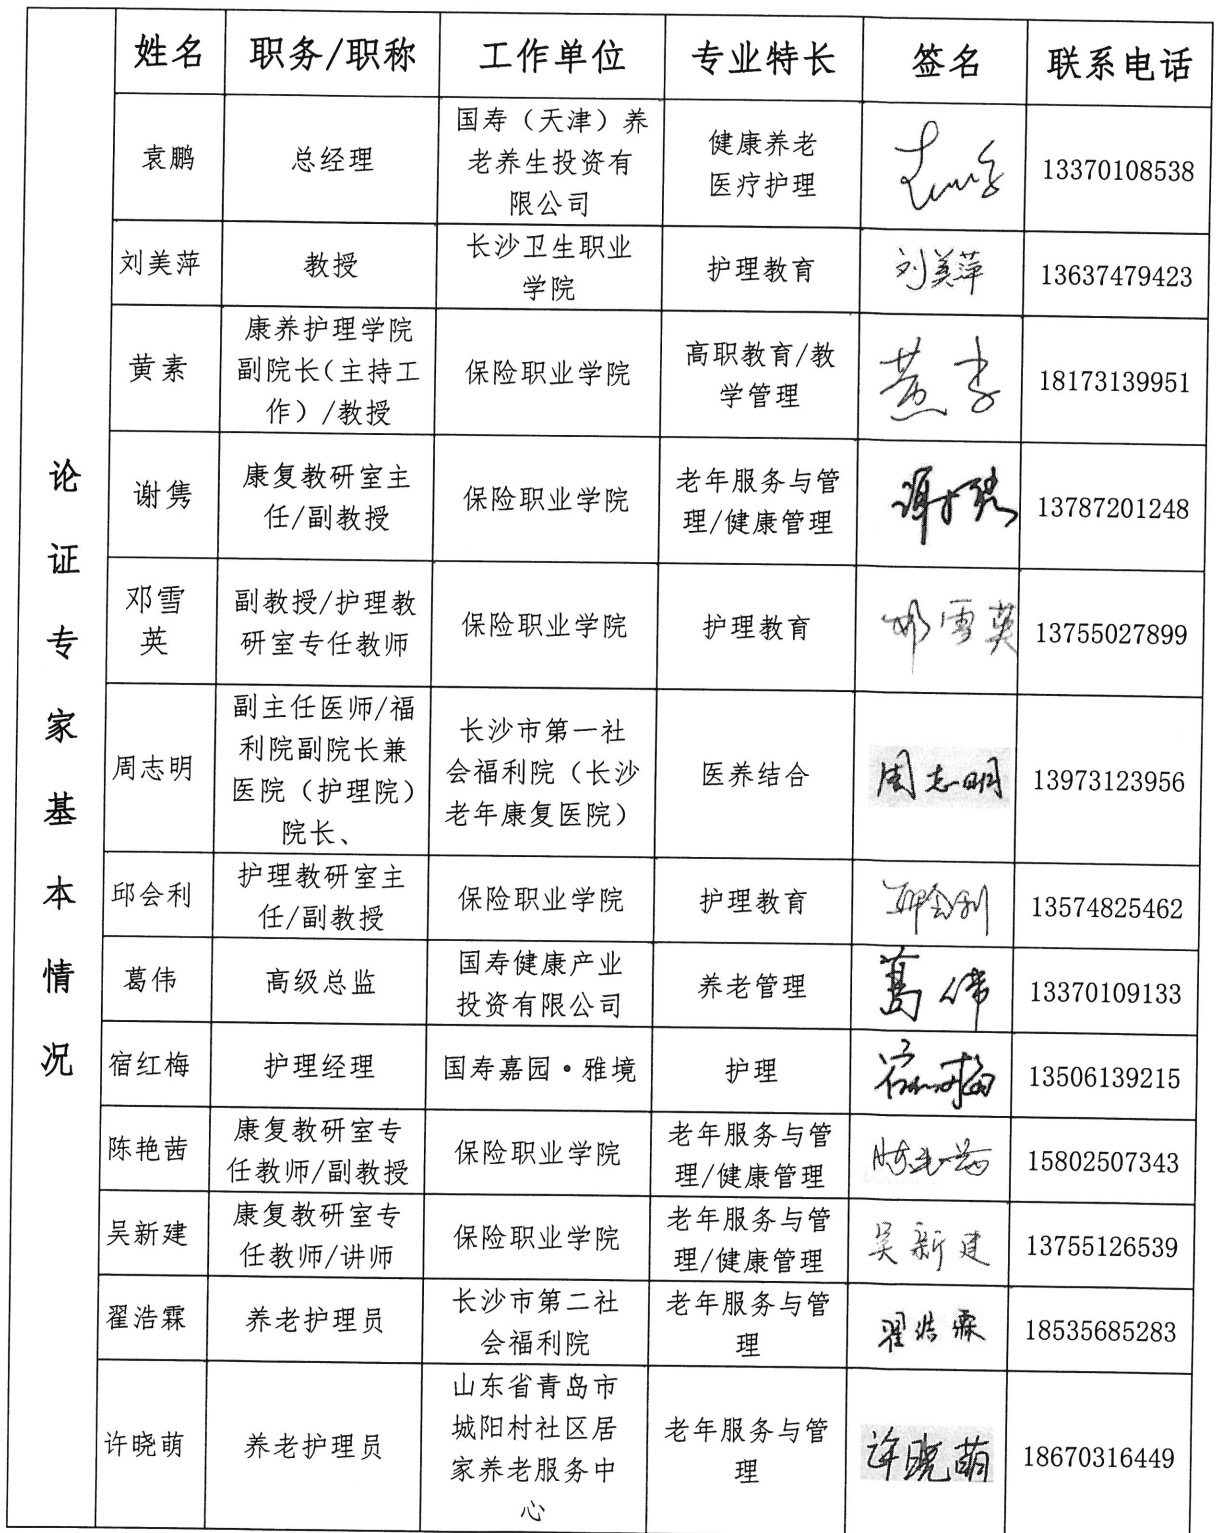 姓名 职务/职称 工作单位 专业特长 签名 联系电话
论证专家基本情况
袁鹏 总经理 国寿（天津）养
老养生投资有
限公司 健康养老
医疗护理 13370108538
刘美萍 教授 长沙卫生职业
学院 护理教育 刘美萍 13637479423
黄素 康养护理学院
副院长（主持工
作）/教授 保险职业学院 高职教育/教
学管理 黄素 18173139951
谢隽 康复教研室主
任/副教授 保险职业学院 老年服务与管
理/健康管理 谢隽 13787201248
邓雪
英 副教授/护理教
研室专任教师 保险职业学院 护理教育 邓雪英 13755027899
周志明 副主任医师/福
利院副院长兼
医院（护理院）
院长、 长沙市第一社
会福利院（长沙
老年康复医院） 医养结合 周志明 13973123956
邱会利 护理教研室主
任/副教授 保险职业学院 护理教育 邱会利 13574825462
葛伟 高级总监 国寿健康产业
投资有限公司 养老管理 葛伟 13370109133
宿红梅 护理经理 国寿嘉园·雅境 护理 宿红梅 13506139215
陈艳茜 康复教研室专
任教师/副教授 保险职业学院 老年服务与管
理/健康管理 陈艳茜 15802507343
吴新建 康复教研室专
任教师/讲师 保险职业学院 老年服务与管
理/健康管理 吴新建 13755126539
翟浩霖 养老护理员 长沙市第二社
会福利院 老年服务与管
理 翟浩霖 18535685283
许晓萌 养老护理员 山东省青岛市
城阳村社区居
家养老服务中
心 老年服务与管
理 许晓萌 18670316449